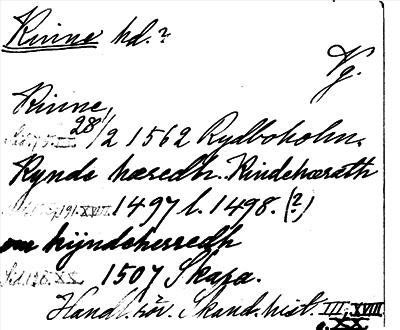 Kinne hd.?
Vg.
Kinne,
28/2 1562 Rydboholm.
Kynde hæredh. Kindehæræth
1497 l. 1498. (?)
kijndeherredh
1507 Skara.
Handl. rör. Skand. hist. III, XVIII
o. XX.